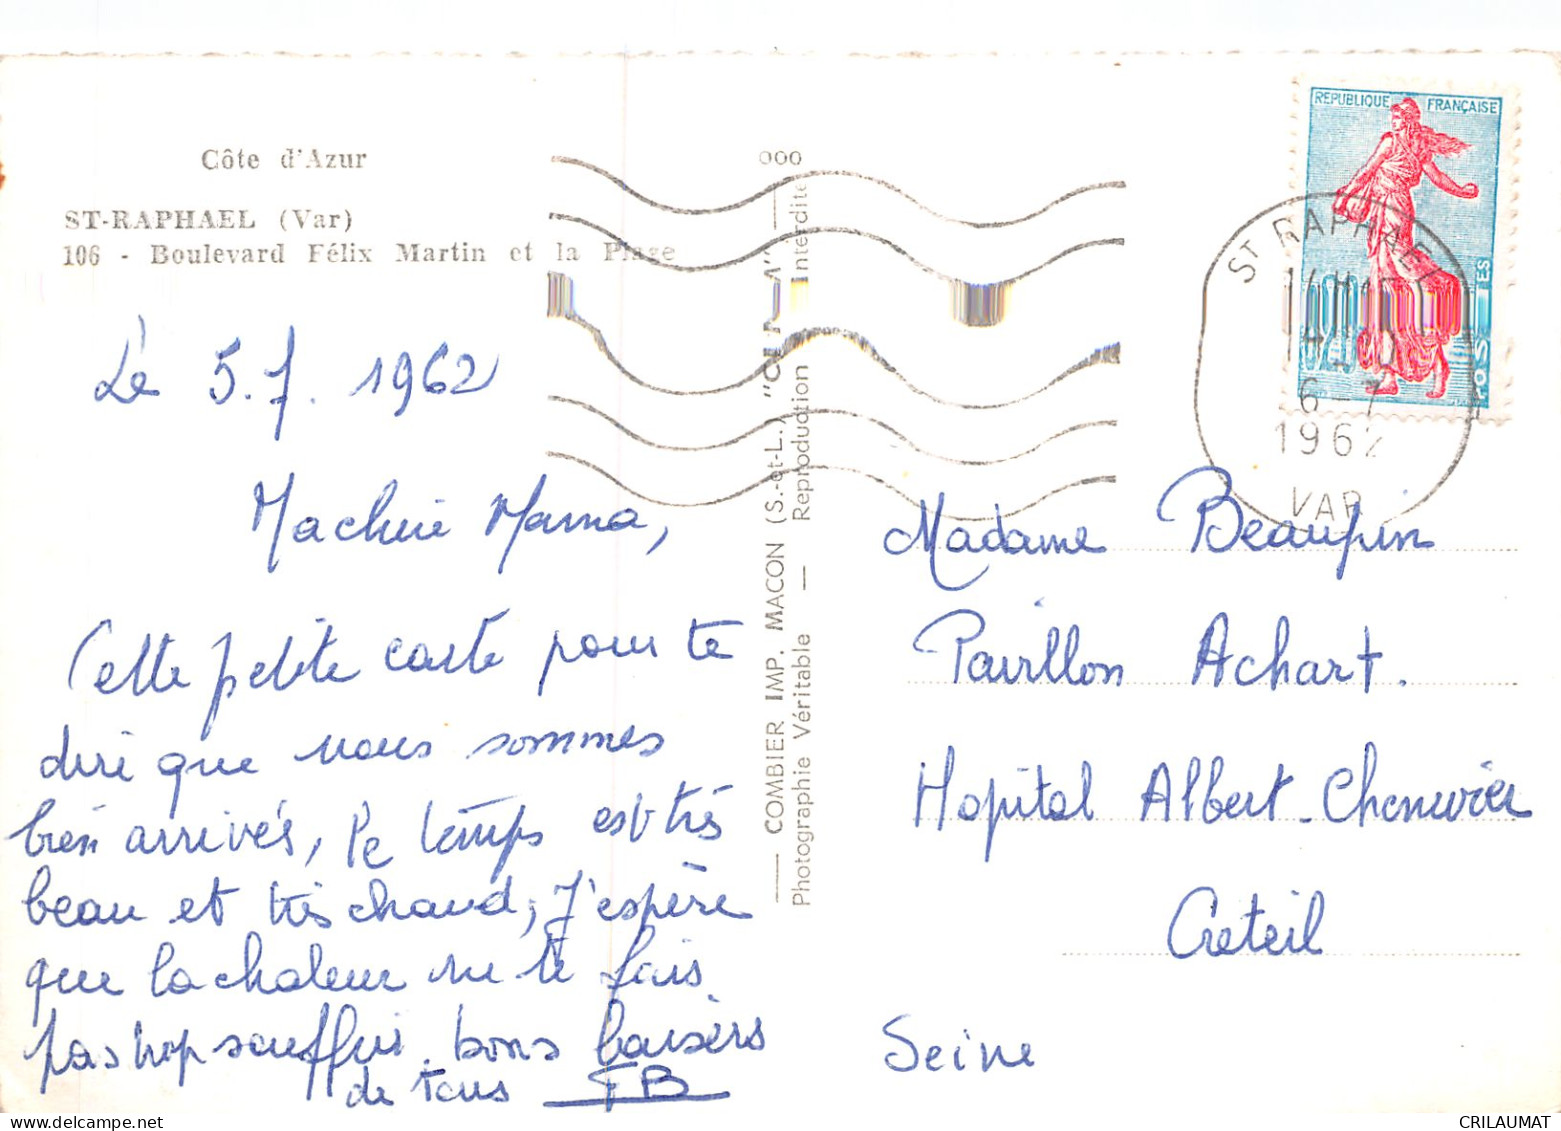 Côte d'Azur
ST-RAPHAEL (Var)
106 - Boulevard Félix Martin et la Plage
Le 5.7.1962
Ma chérie Mama,
Cette petite carte pour te
dire que nous sommes
bien arrivés, le temps est très
beau et très chaud, J'espère
que la chaleur ne te fais
pas trop souffrir. bons baisers
de tous FB
ooo
— COMBIER IMP. MACON (S.-et-L.) "
Photographie Véritable — Reproduction Interdite
REPUBLIQUE FRANÇAISE
0,20
POSTES
ST RAPHAEL
6-7
1962
VAR
Madame Beaupin
Pavillon Achart.
Hopital Albert-Chenevier
Creteil
Seine
CRILAUMAT